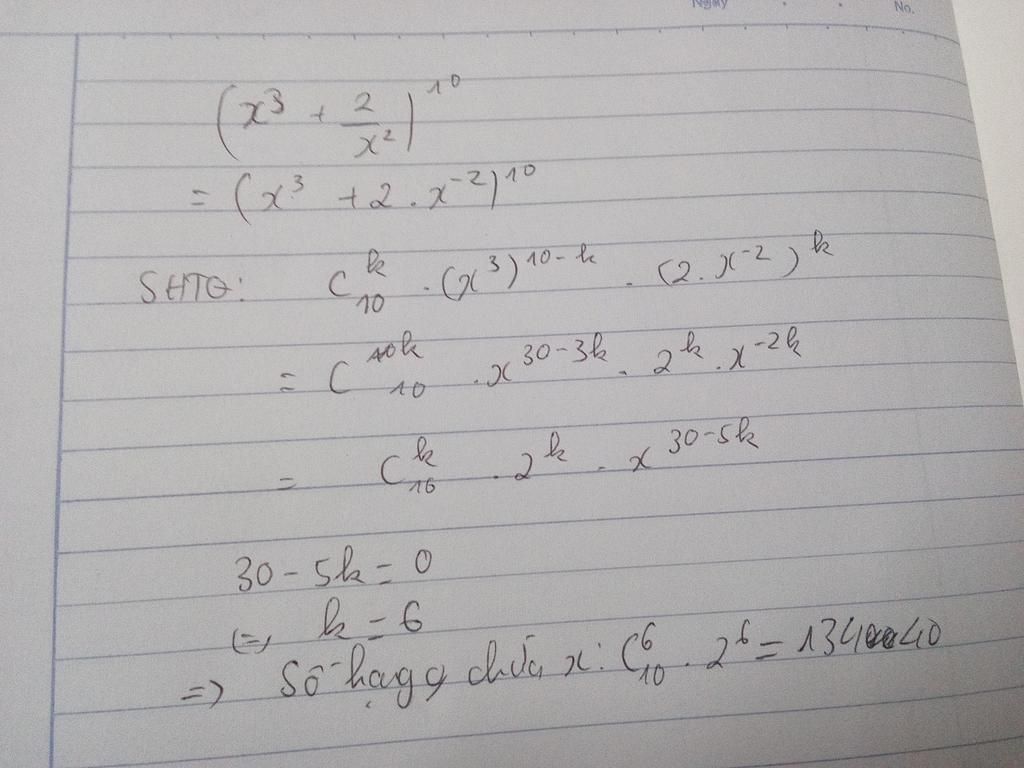 Ngày No.
(x³ + 2/x²)¹⁰
= (x³ + 2 . x⁻²)¹⁰
SHTQ: C₁₀ᵏ . (x³)¹⁰⁻ᵏ . (2 . x⁻²)ᵏ
= C₁₀ᵏ . x³⁰⁻³ᵏ . 2ᵏ . x⁻²ᵏ
= C₁₀ᵏ . 2ᵏ . x³⁰⁻⁵ᵏ
30 - 5k = 0
(=) k = 6
=> Số hạng chứa x: C₁₀⁶ . 2⁶ = 13440